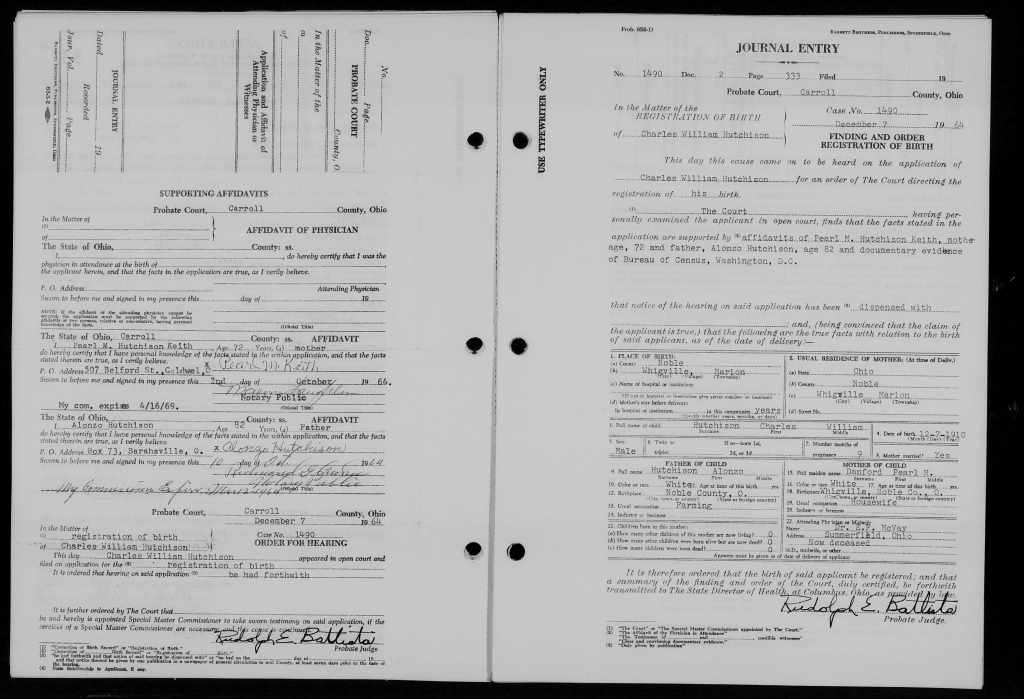 No.
Doc. Page
PROBATE COURT
County, O.
In the Matter of the
of
Application and Affidavit of
Attending Physician or
Witnesses
JOURNAL ENTRY
Dated 19
Recorded
Jour. Vol. Page
SUPPORTING AFFIDAVITS
Probate Court, Carroll County, Ohio
In the Matter of
(1)
of
AFFIDAVIT OF PHYSICIAN
The State of Ohio, County: ss.
I, , do hereby certify that I was the
physician in attendance at the birth of
the applicant herein, and that the facts in the application are true, as I verily believe.
P. O. Address Attending Physician
Sworn to before me and signed in my presence this day of 19
(Official Title)
The State of Ohio, Carroll County: ss. AFFIDAVIT
I Pearl M. Hutchison Keith Age 72 Years, (2) mother
do hereby certify that I have personal knowledge of the facts stated in the within application, and that the facts
stated therein are true, as I verily believe.
P. O. Address 507 Belford St., Caldwel, Pearl M. Keith
Sworn to before me and signed in my presence this 2nd day of October 1964.
Notary Public
My com. expires 4/16/69. (Official Title)
The State of Ohio, County: ss. AFFIDAVIT
I Alonzo Hutchison Age 82 Years, (2) Father
do hereby certify that I have personal knowledge of the facts stated in the within application, and that the facts
stated therein are true, as I verily believe.
P. O. Address Box 73, Sarahsville, O. x Alonzo Hutchison
Sworn to before me and signed in my presence this 10 day of Oct. 1964
Notary Public
My Commission Expires
Probate Court, Carroll County, Ohio
December 7 1964
In the Matter of
(1) registration of birth
of Charles William Hutchison
Case No. 1490
ORDER FOR HEARING
This day Charles William Hutchison appeared in open court and
filed an application for the registration of birth
It is ordered that hearing on said application be had forthwith
It is further ordered by The Court that
be and hereby is appointed Special Master Commissioner to take sworn testimony on said application, if the
services of a Special Master Commissioner are necessary
Rudolph E. Battista
Probate Judge
USE TYPEWRITER ONLY
Prob. 656-D
BARRETT BROTHERS, PUBLISHERS, SPRINGFIELD, OHIO
JOURNAL ENTRY
No. 1490 Doc. 2 Page 333 Filed 19
Probate Court, Carroll County, Ohio
In the Matter of the
REGISTRATION OF BIRTH
of Charles William Hutchison
Case No. 1490
December 7 1964
FINDING AND ORDER
REGISTRATION OF BIRTH
This day this cause came on to be heard on the application of
Charles William Hutchison for an order of The Court directing the
registration of his birth.
(1) The Court having per-
sonally examined the applicant in open court, finds that the facts stated in the
application are supported by affidavits of Pearl M. Hutchison Keith, mothe
age, 72 and father, Alonzo Hutchison, age 82 and documentary evidence
of Bureau of Census, Washington, D.C.
that notice of the hearing on said application has been dispensed with
; and, (being convinced that the claim of
the applicant is true,) that the following are the true facts with relation to the birth
of said applicant, as of the date of delivery:—
1. PLACE OF BIRTH:
(a) County Noble
(b) Whigville, Marion
(City) (Village) (Township)
(c) Name of hospital or institution:
(d) Mother's stay before delivery:
In hospital or institution in this community years
2. USUAL RESIDENCE OF MOTHER: (At time of Deliv.)
(a) State Ohio
(b) County Noble
(c) Whigville Marion
(City) (Village) (Township)
(d) Street No.
3. Full name of child Hutchison Charles William
Surname First Middle
4. Date of birth 12-7-1910
5. Sex: Male
6. Twin or triplet
If so—born 1st, 2d, or 3d
7. Number months of pregnancy 9
8. Mother married? Yes
FATHER OF CHILD
9. Full name Hutchison Alonzo
Surname First Middle
10. Color or race White 11. Age at time of this birth yrs.
12. Birthplace Noble County, O.
13. Usual occupation Farming
14. Industry or business
MOTHER OF CHILD
15. Full maiden name Danford Pearl M.
Surname First Middle
16. Color or race White 17. Age at time of this birth yrs.
18. Birthplace Whigville, Noble Co., O.
19. Usual occupation Housewife
20. Industry or business
21. Children born to this mother:
(a) How many other children of this mother are now living? 0
(b) How many other children were born alive but are now dead? 0
(c) How many children were born dead? 0
22. Attending Physician or Midwife
Name Dr. McVay
Address Summerfield, Ohio
Now deceased
M.D., midwife, or other
Answers must be given as of date of delivery of applicant
It is therefore ordered that the birth of said applicant be registered; and that
a summary of the finding and order of the Court, duly certified, be forthwith
transmitted to The State Director of Health, at Columbus, Ohio, as provided by law.
Rudolph E. Battista
Probate Judge.
(1) "The Court" or "The Special Master Commissioner appointed by The Court."
(2) "The Affidavit of the Physician in Attendance"
"The Testimony of and credible witnesses"
"Clear and convincing documentary evidence."
"Only given by publication"